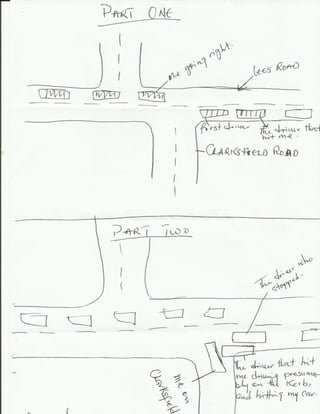 PART ONE
me going right.
LEES ROAD
First driver
The driver that
hit me.
CLARKSFIELD ROAD
PART TWO
The driver who
stopped.
me on
Clarksfield
The driver that hit
me driving presuma
bly on the Kerb,
and hitting my car.